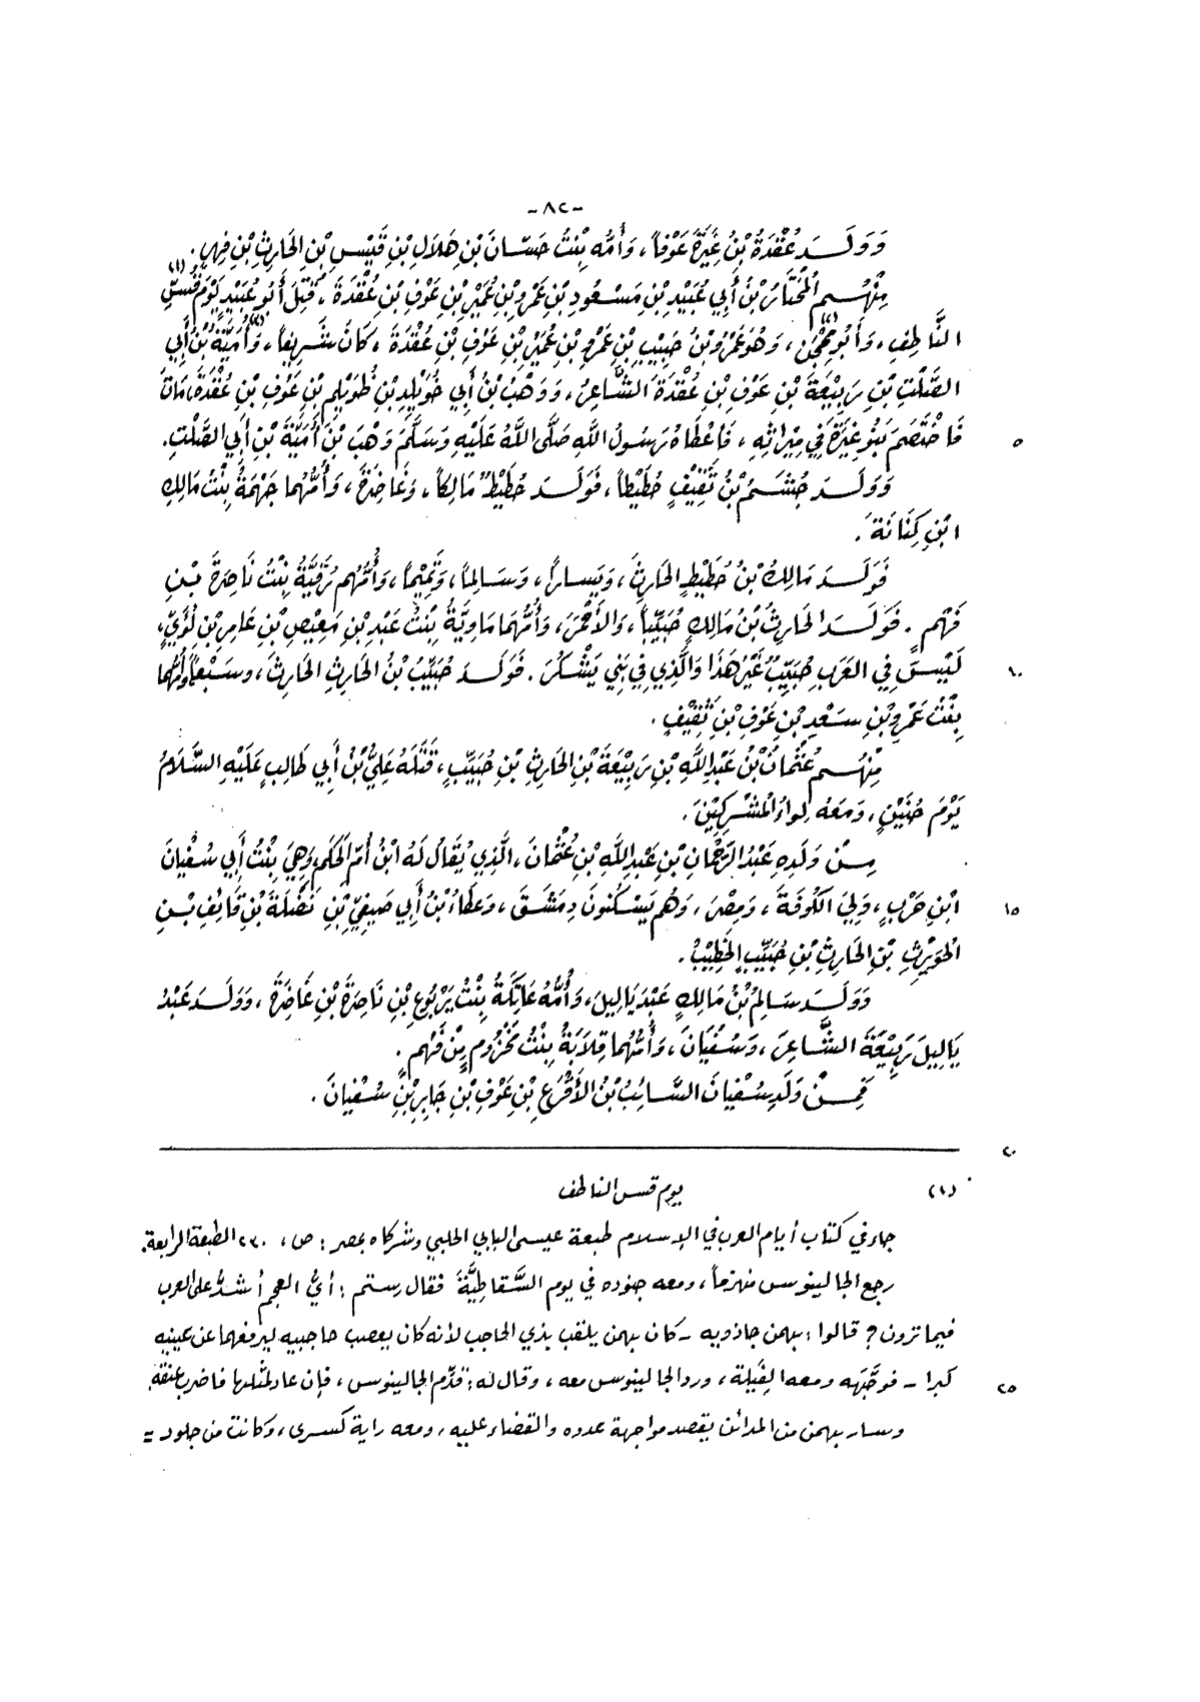 -٨٢-
وَوَلَـــدَ عُقْدَةُ بْنُ غِيَرَةَ عَوْفاً، وَأُمُّهُ بِنْتُ حَسَّانَ بْنِ هِلَالِ بْنِ قَيْسِ بْنِ الحَارِثِ بْنِ فِهْرٍ.
مِنْهُــمُ المُخْتَارُ بْنُ أَبِي عُبَيْدِ بْنِ مَسْعُودِ بْنِ عَمْرِو بْنِ عُمَيْرِ بْنِ عَوْفِ بْنِ عُقْدَةَ، قُتِلَ أَبُو عُبَيْدٍ يَوْمَ قُسِّ (١)
النَّاطِفِ، وَأَبُو مِحْجَنٍ (٢)، وَهُوَ عَمْرُو بْنُ حَبِيبِ بْنِ عَمْرِو بْنِ عُمَيْرِ بْنِ عَوْفِ بْنِ عُقْدَةَ، كَانَ شَرِيفاً، وَأُمَيَّةُ (٣) بْنُ أَبِي
الصَّلْتِ بْنِ رَبِيْعَةَ بْنِ عَوْفِ بْنِ عُقْدَةَ الشَّاعِرُ، وَوَهْبُ بْنُ أَبِي خُوَيْلِدِ بْنِ ظُوَيْلِمِ بْنِ عَوْفِ بْنِ عُقْدَةَ، مَاتَ
فَاخْتَصَمَ بَنُو غِيَرَةَ فِي مِيْرَاثِهِ، فَأَعْطَاهُ رَسُولُ اللَّهِ صَلَّى اللَّهُ عَلَيْهِ وَسَلَّمَ وَهْبَ بْنَ أُمَيَّةَ بْنِ أَبِي الصَّلْتِ. ٥
وَوَلَـــدَ جُشَـــمُ بْنُ ثَقِيْفٍ حُطَيْطاً، فَوَلَــدَ حُطَيْطٌ مَالِكاً، وَغَاضِرَةَ، وَأُمُّهُمَا جَهْمَةُ بِنْتُ مَالِكِ
ابْنِ كِنَانَةَ.
فَوَلَـــدَ مَالِكُ بْنُ حُطَيْطٍ الحَارِثَ، وَيَسَاراً، وَسَالِماً، وَتَمِيْماً، وَأُمُّهُم رُقَيَّةُ بِنْتُ نَاصِرَةَ بْــنِ
فَهْمٍ. فَوَلَــدَ الحَارِثُ بْنُ مَالِكٍ حُبَيِّباً، وَالأَحْمَرَ، وَأُمُّهُمَا مَاوِيَّةُ بِنْتُ عَبْدِ بْنِ مَعِيْصِ بْنِ عَامِرِ بْنِ لُؤَيٍّ،
لَيْسَ فِي العَرَبِ حُبَيِّبٌ غَيْرُ هَذَا وَالَّذِي فِي بَنِي يَشْكُرَ. فَوَلَــدَ حُبَيِّبُ بْنُ الحَارِثِ الحَارِثَ، وسَبْعاً وَأُمُّهُمَا ١٠
بِنْتُ عَمْرِو بْنِ سَعْدِ بْنِ عَوْفِ بْنِ ثَقِيْفٍ.
مِنْهُــم عُثْمَانُ بْنُ عَبْدِ اللَّهِ بْنِ رَبِيْعَةَ بْنِ الحَارِثِ بْنِ حُبَيِّبٍ، قَتَلَهُ عَلِيُّ بْنُ أَبِي طَالِبٍ عَلَيْهِ السَّلَامُ
يَوْمَ حُنَيْنٍ، وَمَعَهُ لِوَاءُ المُشْرِكِيْنَ.
مِــنْ وَلَدِهِ عَبْدُ الرَّحْمَانِ بْنِ عَبْدِ اللَّهِ بْنِ عُثْمَانَ، الَّذِي يُقَالُ لَهُ ابْنُ أُمِّ الحَكَمِ، وَهِيَ بِنْتُ أَبِي سُفْيَانَ
ابْنِ حَرْبٍ، وَلِيَ الكُوفَةَ، وَمِصْرَ، وَهُم يَسْكُنُونَ دِمَشْقَ، وَعَطَاءُ بْنُ أَبِي صَيْفِيِّ بْنِ نَضْلَةَ بْنِ قَائِفِ بْــنِ ١٥
الحُوَيْرِثِ بْنِ الحَارِثِ بْنِ حُبَيِّبٍ الخَطِيْبُ.
وَوَلَــدَ سَالِمُ بْنُ مَالِكٍ عَبْدَ يَالِيلَ، وَأُمُّهُ عَاتِكَةُ بِنْتُ يَرْبُوعِ بْنِ نَاصِرَةَ بْنِ غَاضِرَةَ، وَوَلَــدَ عَبْدُ
يَالِيلَ رَبِيْعَةَ الشَّاعِرَ، وَسُفْيَانَ، وَأُمُّهُمَا قِلَابَةُ بِنْتُ مَخْزُومٍ مِنْ فَهْمٍ.
فَمِــنْ وَلَدِ سُفْيَانَ السَّائِبُ بْنُ الأَقْرَعِ بْنِ عَوْفِ بْنِ جَابِرِ بْنِ سُفْيَانَ.
٢٠
(١) يوم قس الناطف
جاء في كتاب أيام العرب في الإسلام طبعة عيسى البابي الحلبي وشركاه بمصر: ص، ٢٣٠ الطبعة الرابعة.
رجع الجالينوس منهزماً، ومعه جنوده في يوم السَّقاطِيَّة فقال رستم: أيُّ العجم أشدُّ على العرب
فيما ترون؟ قالوا: بهمن جاذويه - كان بهمن يلقب بذي الحاجب لأنه كان يعصب حاجبيه ليرفعهما عن عينيه
كبرا - فوجَّهه ومعه الفِيَلة، ورد الجالينوس معه، وقال له: قدِّم الجالينوس، فإن عاد لمثلها فاضرب عنقه. ٢٥
وسار بهمن من المدائن يقصد مواجهة عدوه والقضاء عليه، ومعه راية كسرى، وكانت من جلود =